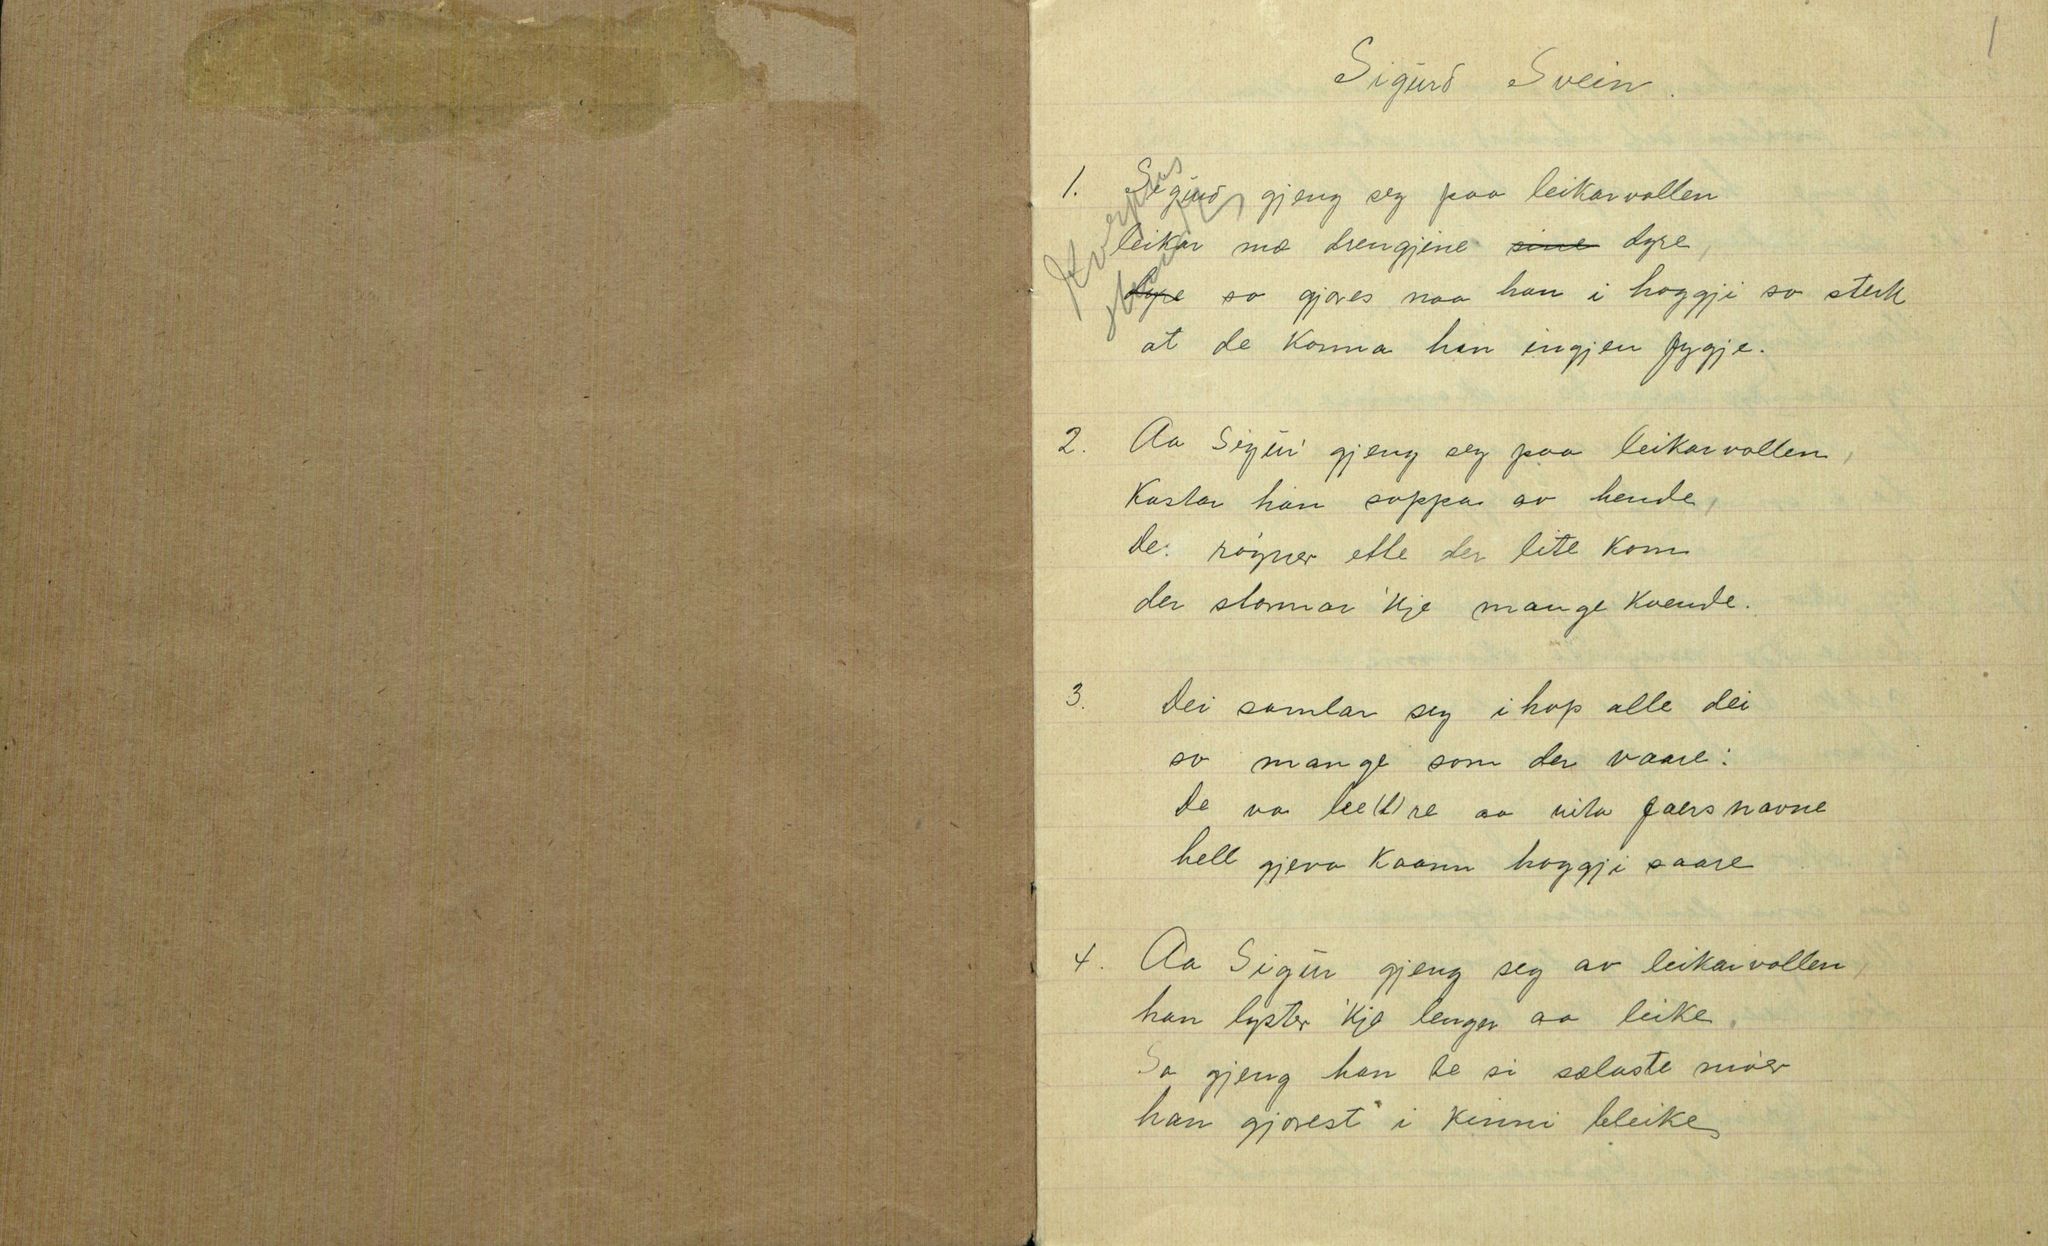 1
Sigurd Svein.
1. Sigurd gjeng seg paa leikarvollen
leikar mæ drengjine sine dyre,
dyre so gjeves naa han i hoggji so sterk
at de konna han ingjen fygje.
2. Aa Sigur gjeng seg paa leikarvollen,
Kastar han soppa av hende,
De rógner ette der lite kom
der stannar 'kje mange kvende.
3. Dei samlar seg ihop alle dei
so mange som der vaare:
De va bee(d)re aa vita faers navne
hell gjeva kaann hoggji saare
4. Aa Sigur gjeng seg av leikarvollen,
han lyster 'kje lenger aa leike.
So gjeng han te si sælaste móer
han gjorest i kinni bleike